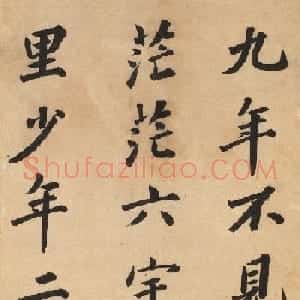 九年不見
茫茫六宇
里少年二
Shufaziliao.com